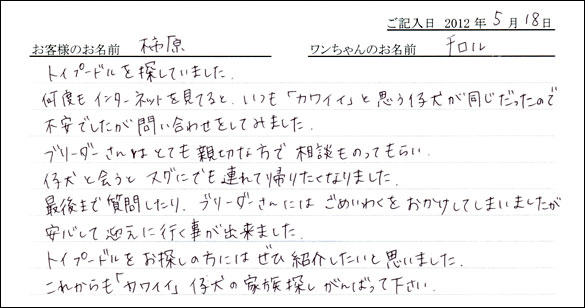 ご記入日 2012年5月18日
お客様のお名前 柿原 ワンちゃんのお名前 チロル
トイプードルを探していました。
何度もインターネットを見てると、いつも「カワイイ」と思う仔犬が同じだったので
不安でしたが問い合わせをしてみました。
ブリーダーさんはとても親切な方で相談ものってもらい
仔犬と会うとスグにでも連れて帰りたくなりました。
最後まで質問したり、ブリーダーさんにはごめいわくをおかけしてしまいましたが
安心して迎えに行く事が出来ました。
トイプードルをお探しの方にはぜひ紹介したいと思いました。
これからも「カワイイ」仔犬の家族探しがんばって下さい。